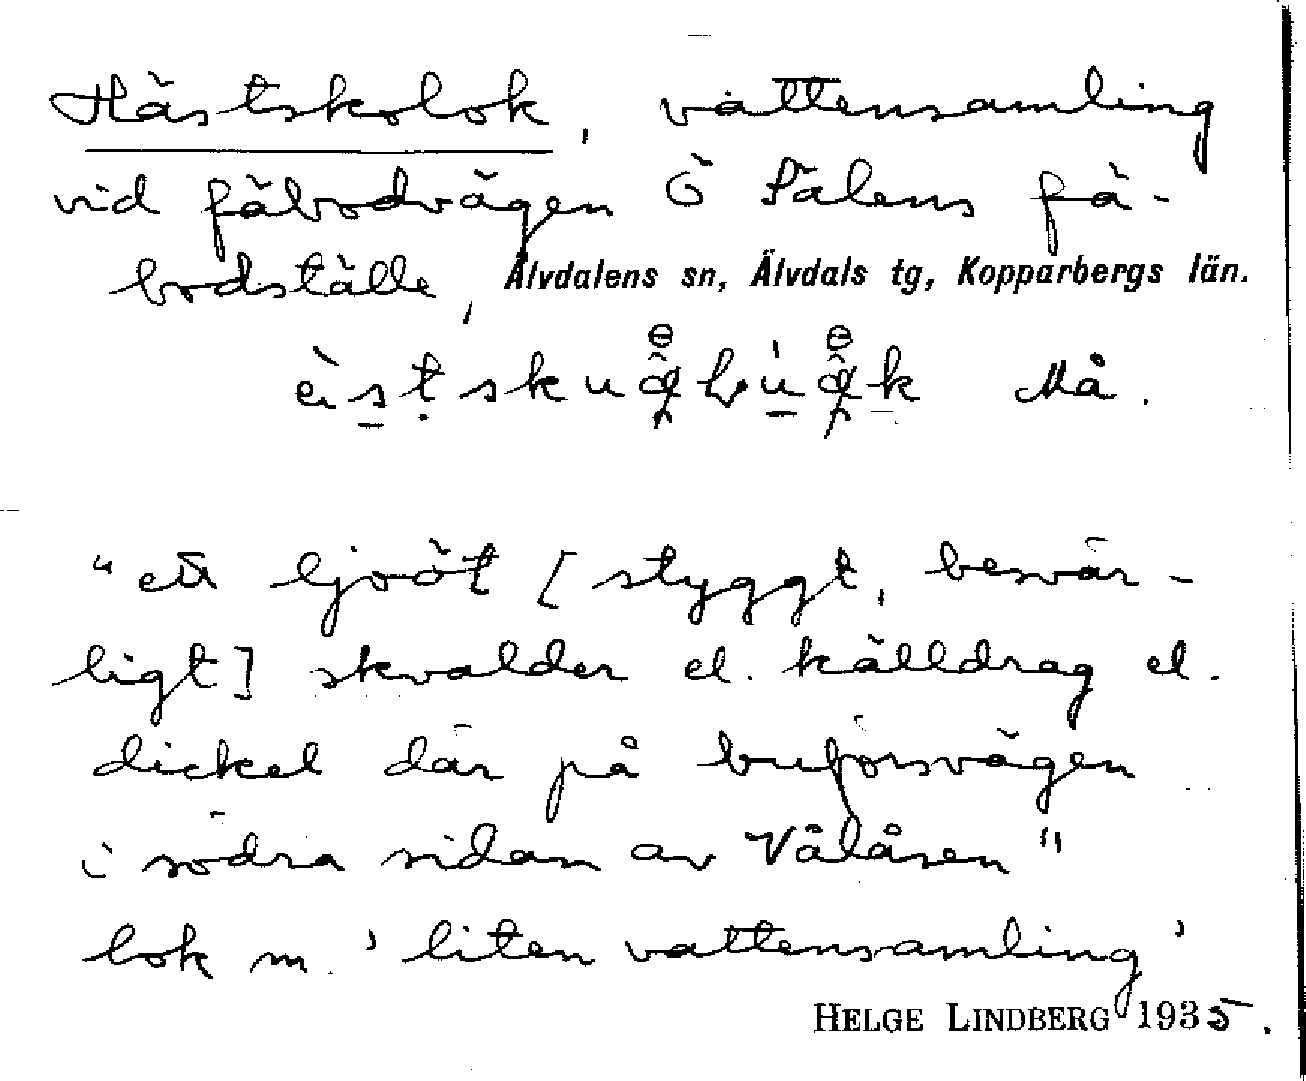 Hästskolok, vattensamling
vid fäbodvägen Ö Sälens fä-
bodställe, Älvdalens sn, Älvdals tg, Kopparbergs län.
Må.
"ett ljoöt [styggt, besvär-
ligt] skvalder el. källdrag el.
dickel där på buförsvägen
i södra sidan av Vålåsen"
lok m. 'liten vattensamling'
HELGE LINDBERG 1935.